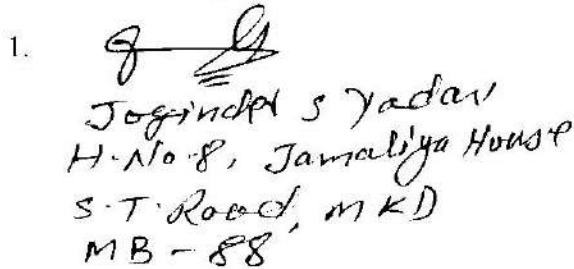 1.
Joginder S Yadav
H.No.8, Jamaliya House
S.T. Road, MKD
MB-88